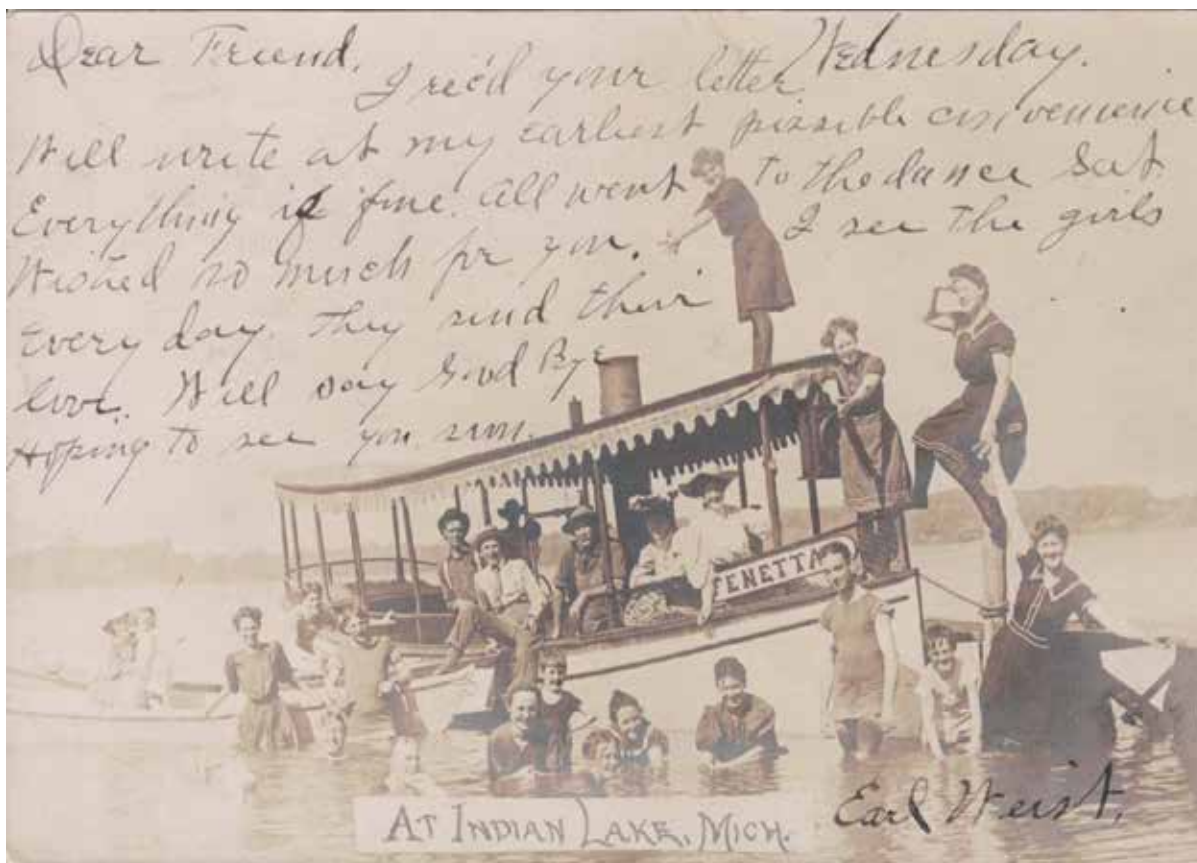 Dear Friend,
I rec'd your letter Wednesday.
Will write at my earliest possible convenience
Everything is fine. All went to the dance Sat
Wished so much for you. I see the girls
every day. they send their
love. Will say Good Bye
Hoping to see you soon.
FENETTA
At Indian Lake, Mich.
Earl Weist.